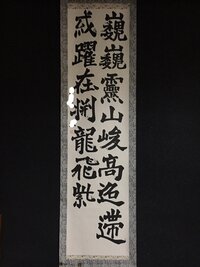 巍巍靈山峻高迢遰
或躍在淵龍飛紫